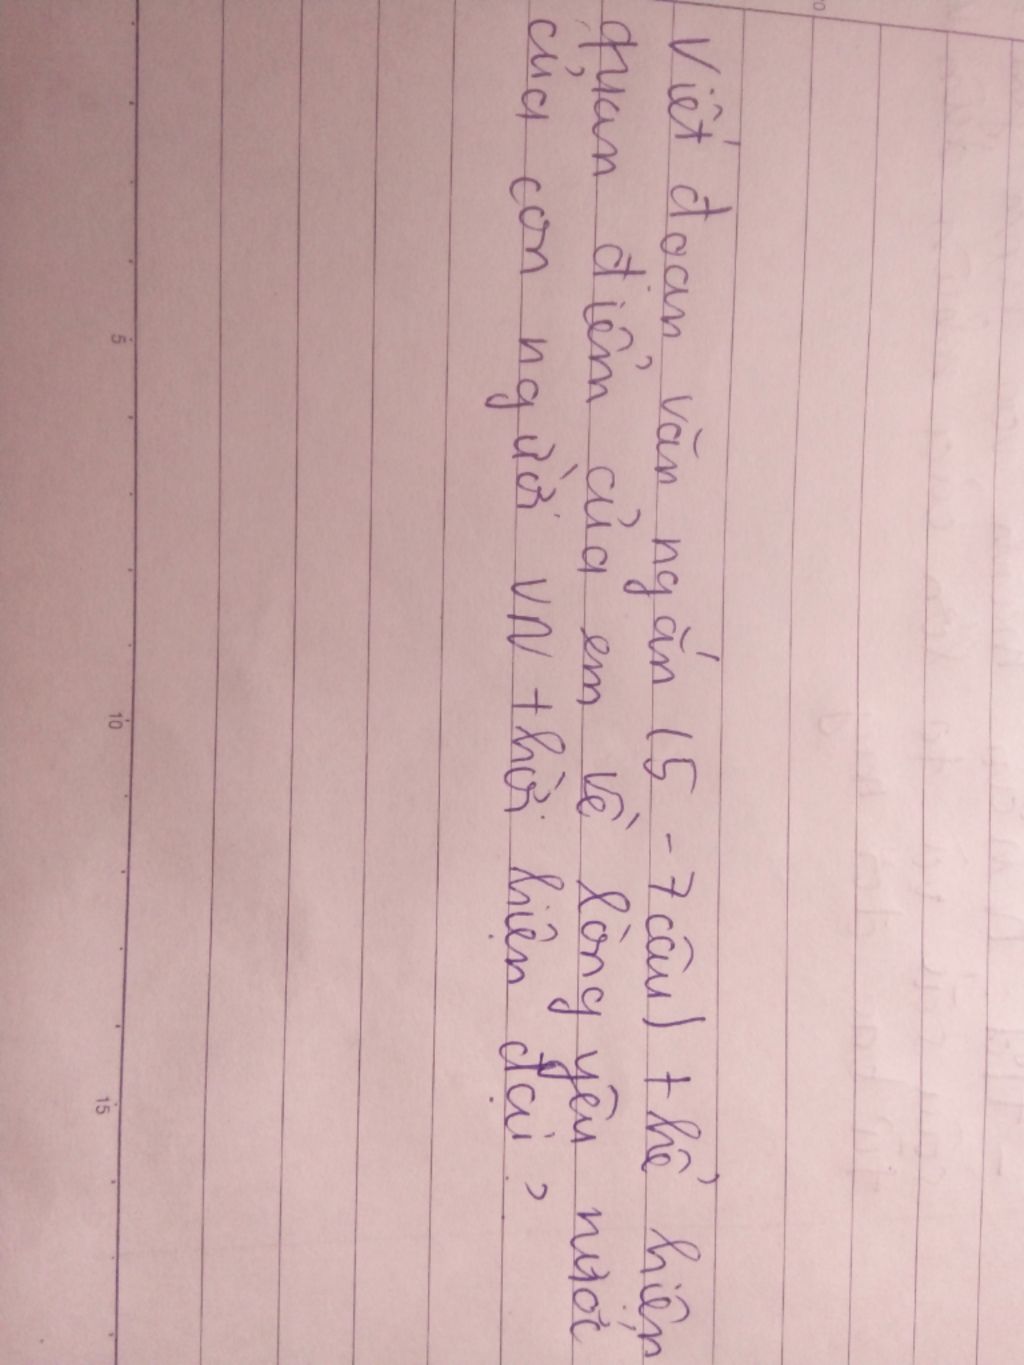 Viết đoạn văn ngắn (5-7 câu) thể hiện
quan điểm của em về lòng yêu nước
của con người VN thời hiện đại?
5
10
15